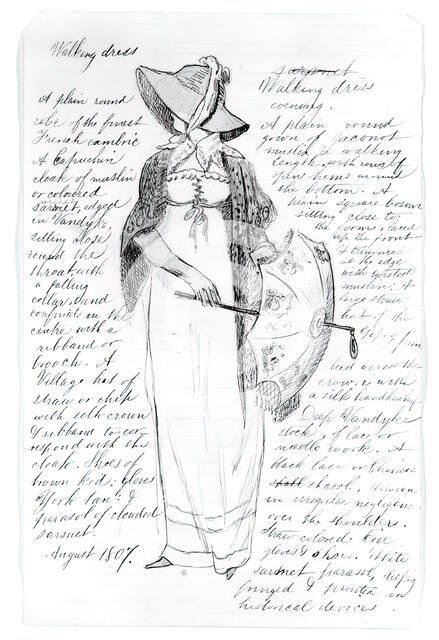 Walking dress
A plain round
robe of the finest
French cambric
A Capuchin
cloak of muslin
or coloured
sarsnet, edged
in Vandyke,
sitting close
round the
throat with
a falling
collar, and
confined in the
centre with a
ribband or
brooch. A
Village hat of
straw or chip
with silk crown
& ribband to cor-
respond with the
cloak. Shoes of
brown kid, gloves
"York tan" &
parasol of clouded
sarsnet.
August 1807.
sarsnet
Walking dress
evening.
A plain round
gown of jaconot
muslin a walking
length, with rows of
open hems around
the bottom. A
plain square bosom
sitting close to
the form, laced
up the front
& trimmed
at the edge
with twisted
muslin. A
large straw
hat of the
Gipsy form
tied across the
crown with
a silk handkerchief
Deep Vandyke
of lace or
needle work. A
black lace or
shawl, thrown
in irregular negligence
over the shoulders.
Straw colored kid
gloves & shoes. White
sarsnet parasol, deeply
fringed & painted in
historical devices.